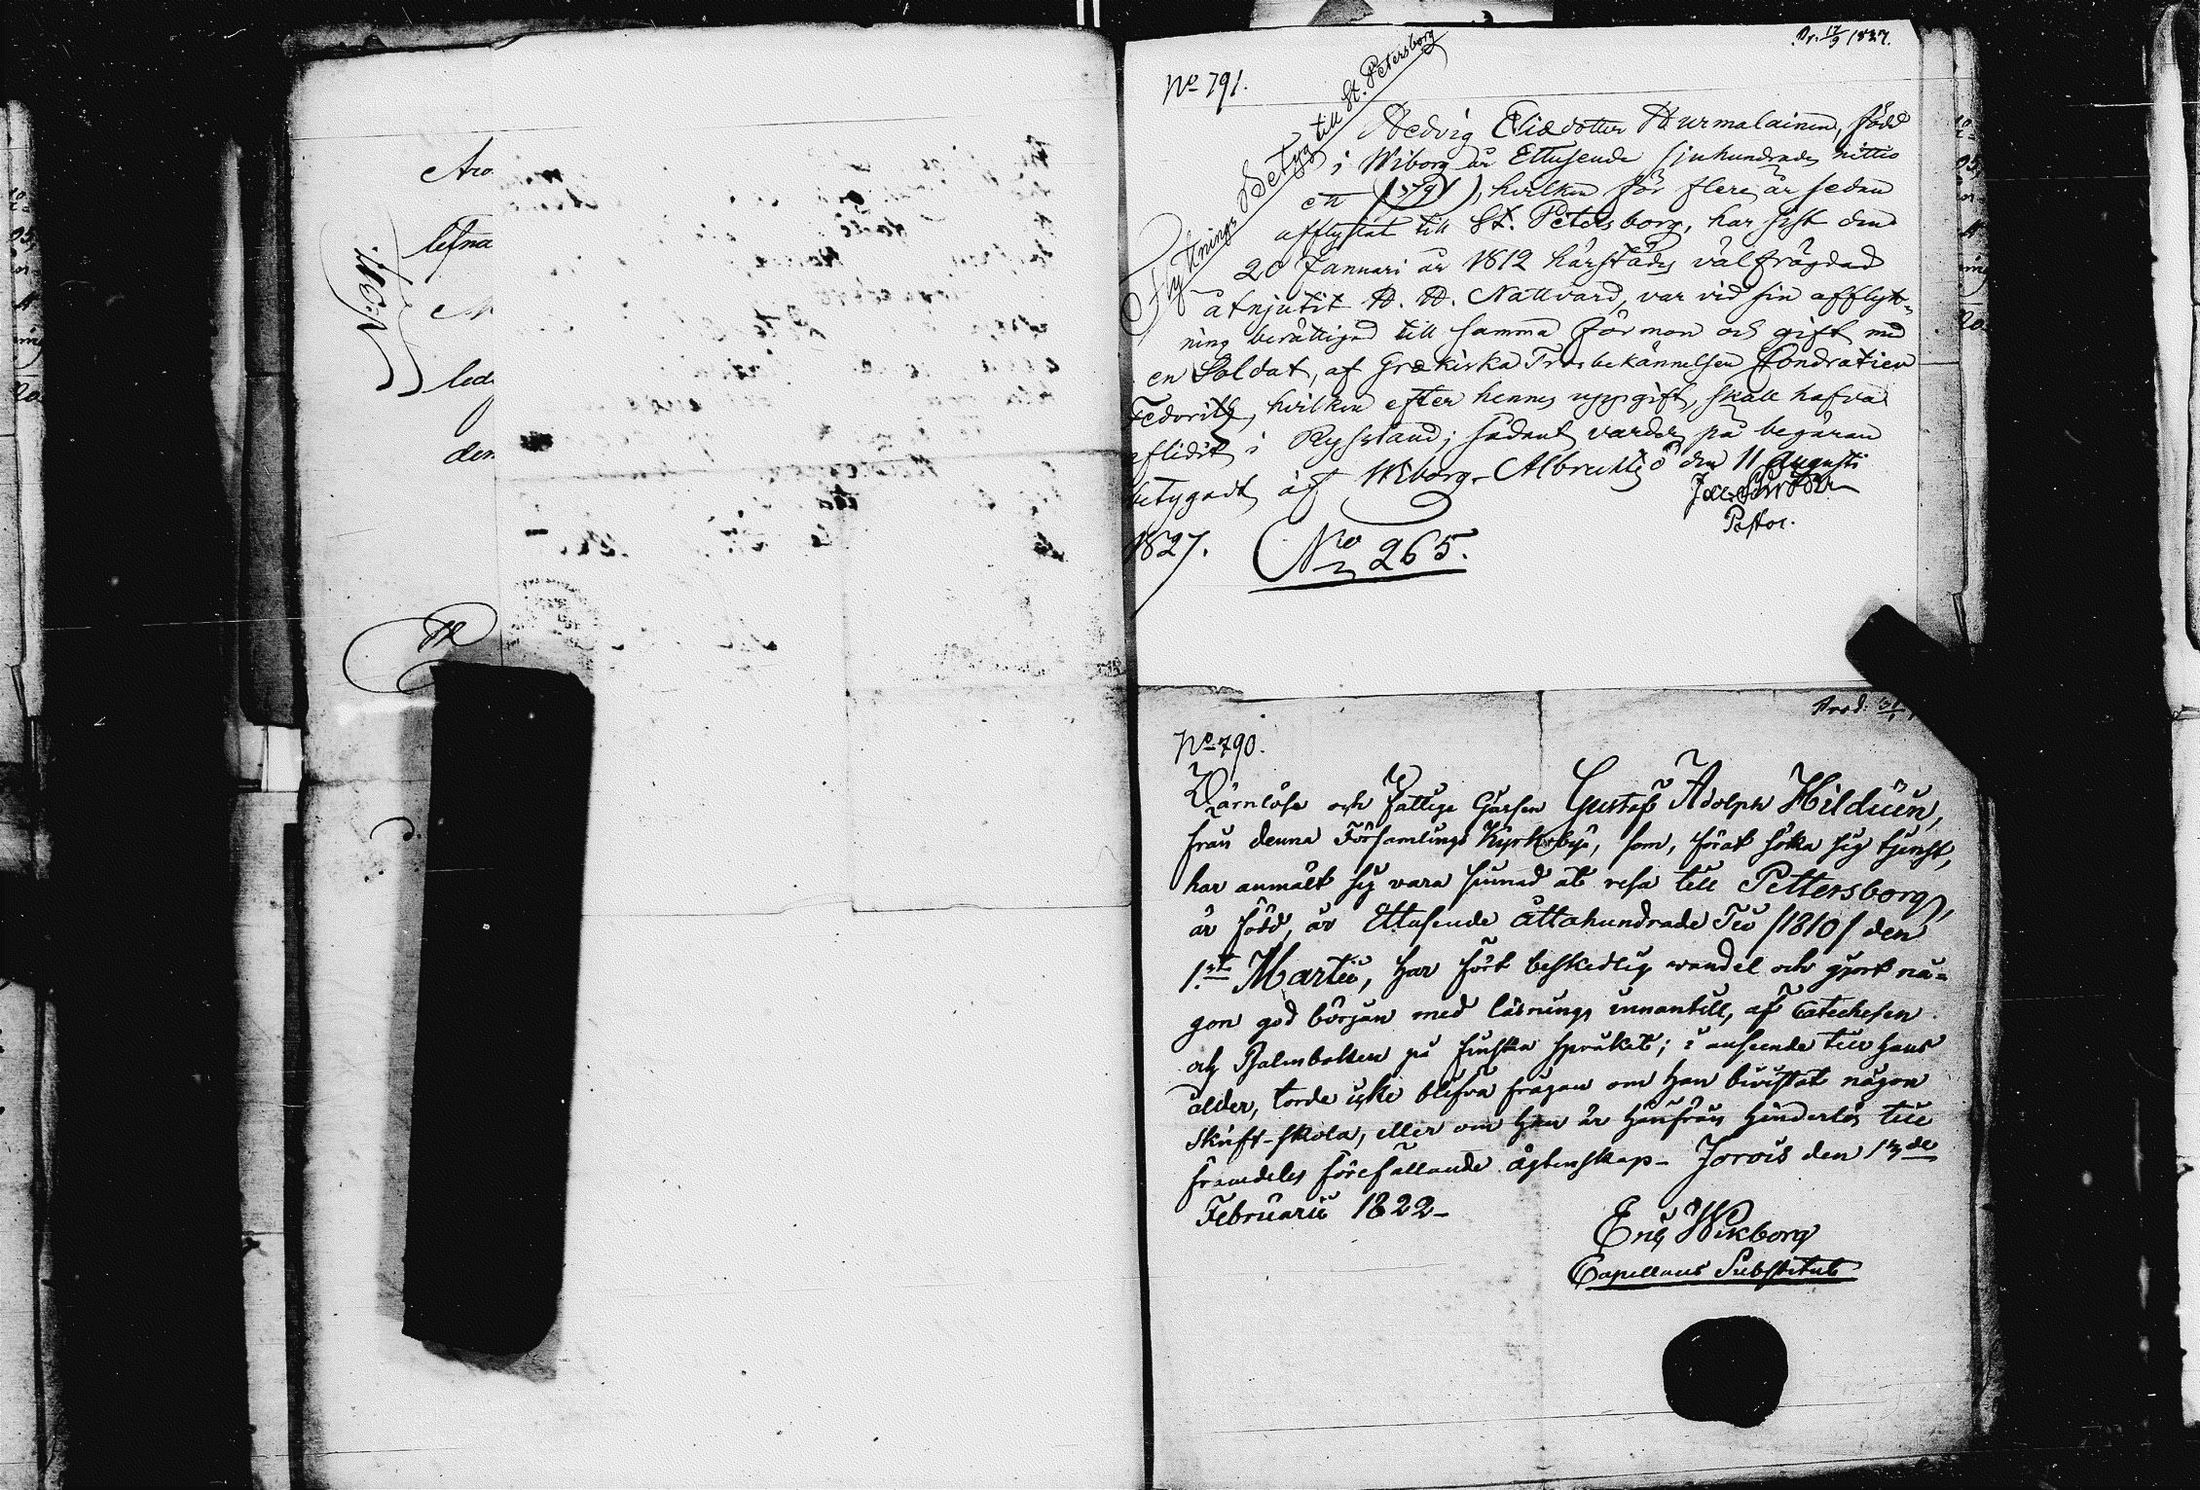 Aro
lefna
N
led
den
No 791.
Pr. 17/9 1827.
Flyttnings Betyg till St. Petersborg
Hedvig Eliædotter Hurmalainen, född
i Wiborg år Ettusende sjuhundrade nittio
ett (1791), hvilken för flere år sedan
afflyttat till St. Petersborg, har sist den
20 Januari år 1812 härstädes välfrägdad
åtnjutit H. H. Nattvard, var vid sin afflytt-
ning berättigad till samma förmon och gift med
en Soldat, af Grekiska Trosbekännelsen Condratien
Fedoritz, hvilken efter hennes uppgift, skall hafva
aflidit i Ryssland; sådant varder på begäran
betygadt af Wiborg den 11 Augusti
1827.
Pastor.
No 265.
No 790.
Prod.
Wärnlöse och fattige Gossen Gustaf Adolph Hildéen,
från denna Församlings Kyrkoby, som, förat söka sig tjenst,
har anmält sig vara sinnad at resa till Pettersborg,
är född, år Ettusende åttahundrade Tio /1810/ den
1.st Martii, har fört beskedlig vandel och gjort nå-
gon god början med läsning innantill, af Catechesen
och Psalmboken på finska språket; i anseende till hans
ålder, torde icke blifva frågan om han bivistat någon
Skrift-skola, eller om han är härifrån hinderlös till
framdeles förefallande ägtenskap. Jorois den 13de
Februarii 1822-
Eric Wikborg
Capellans Substitut